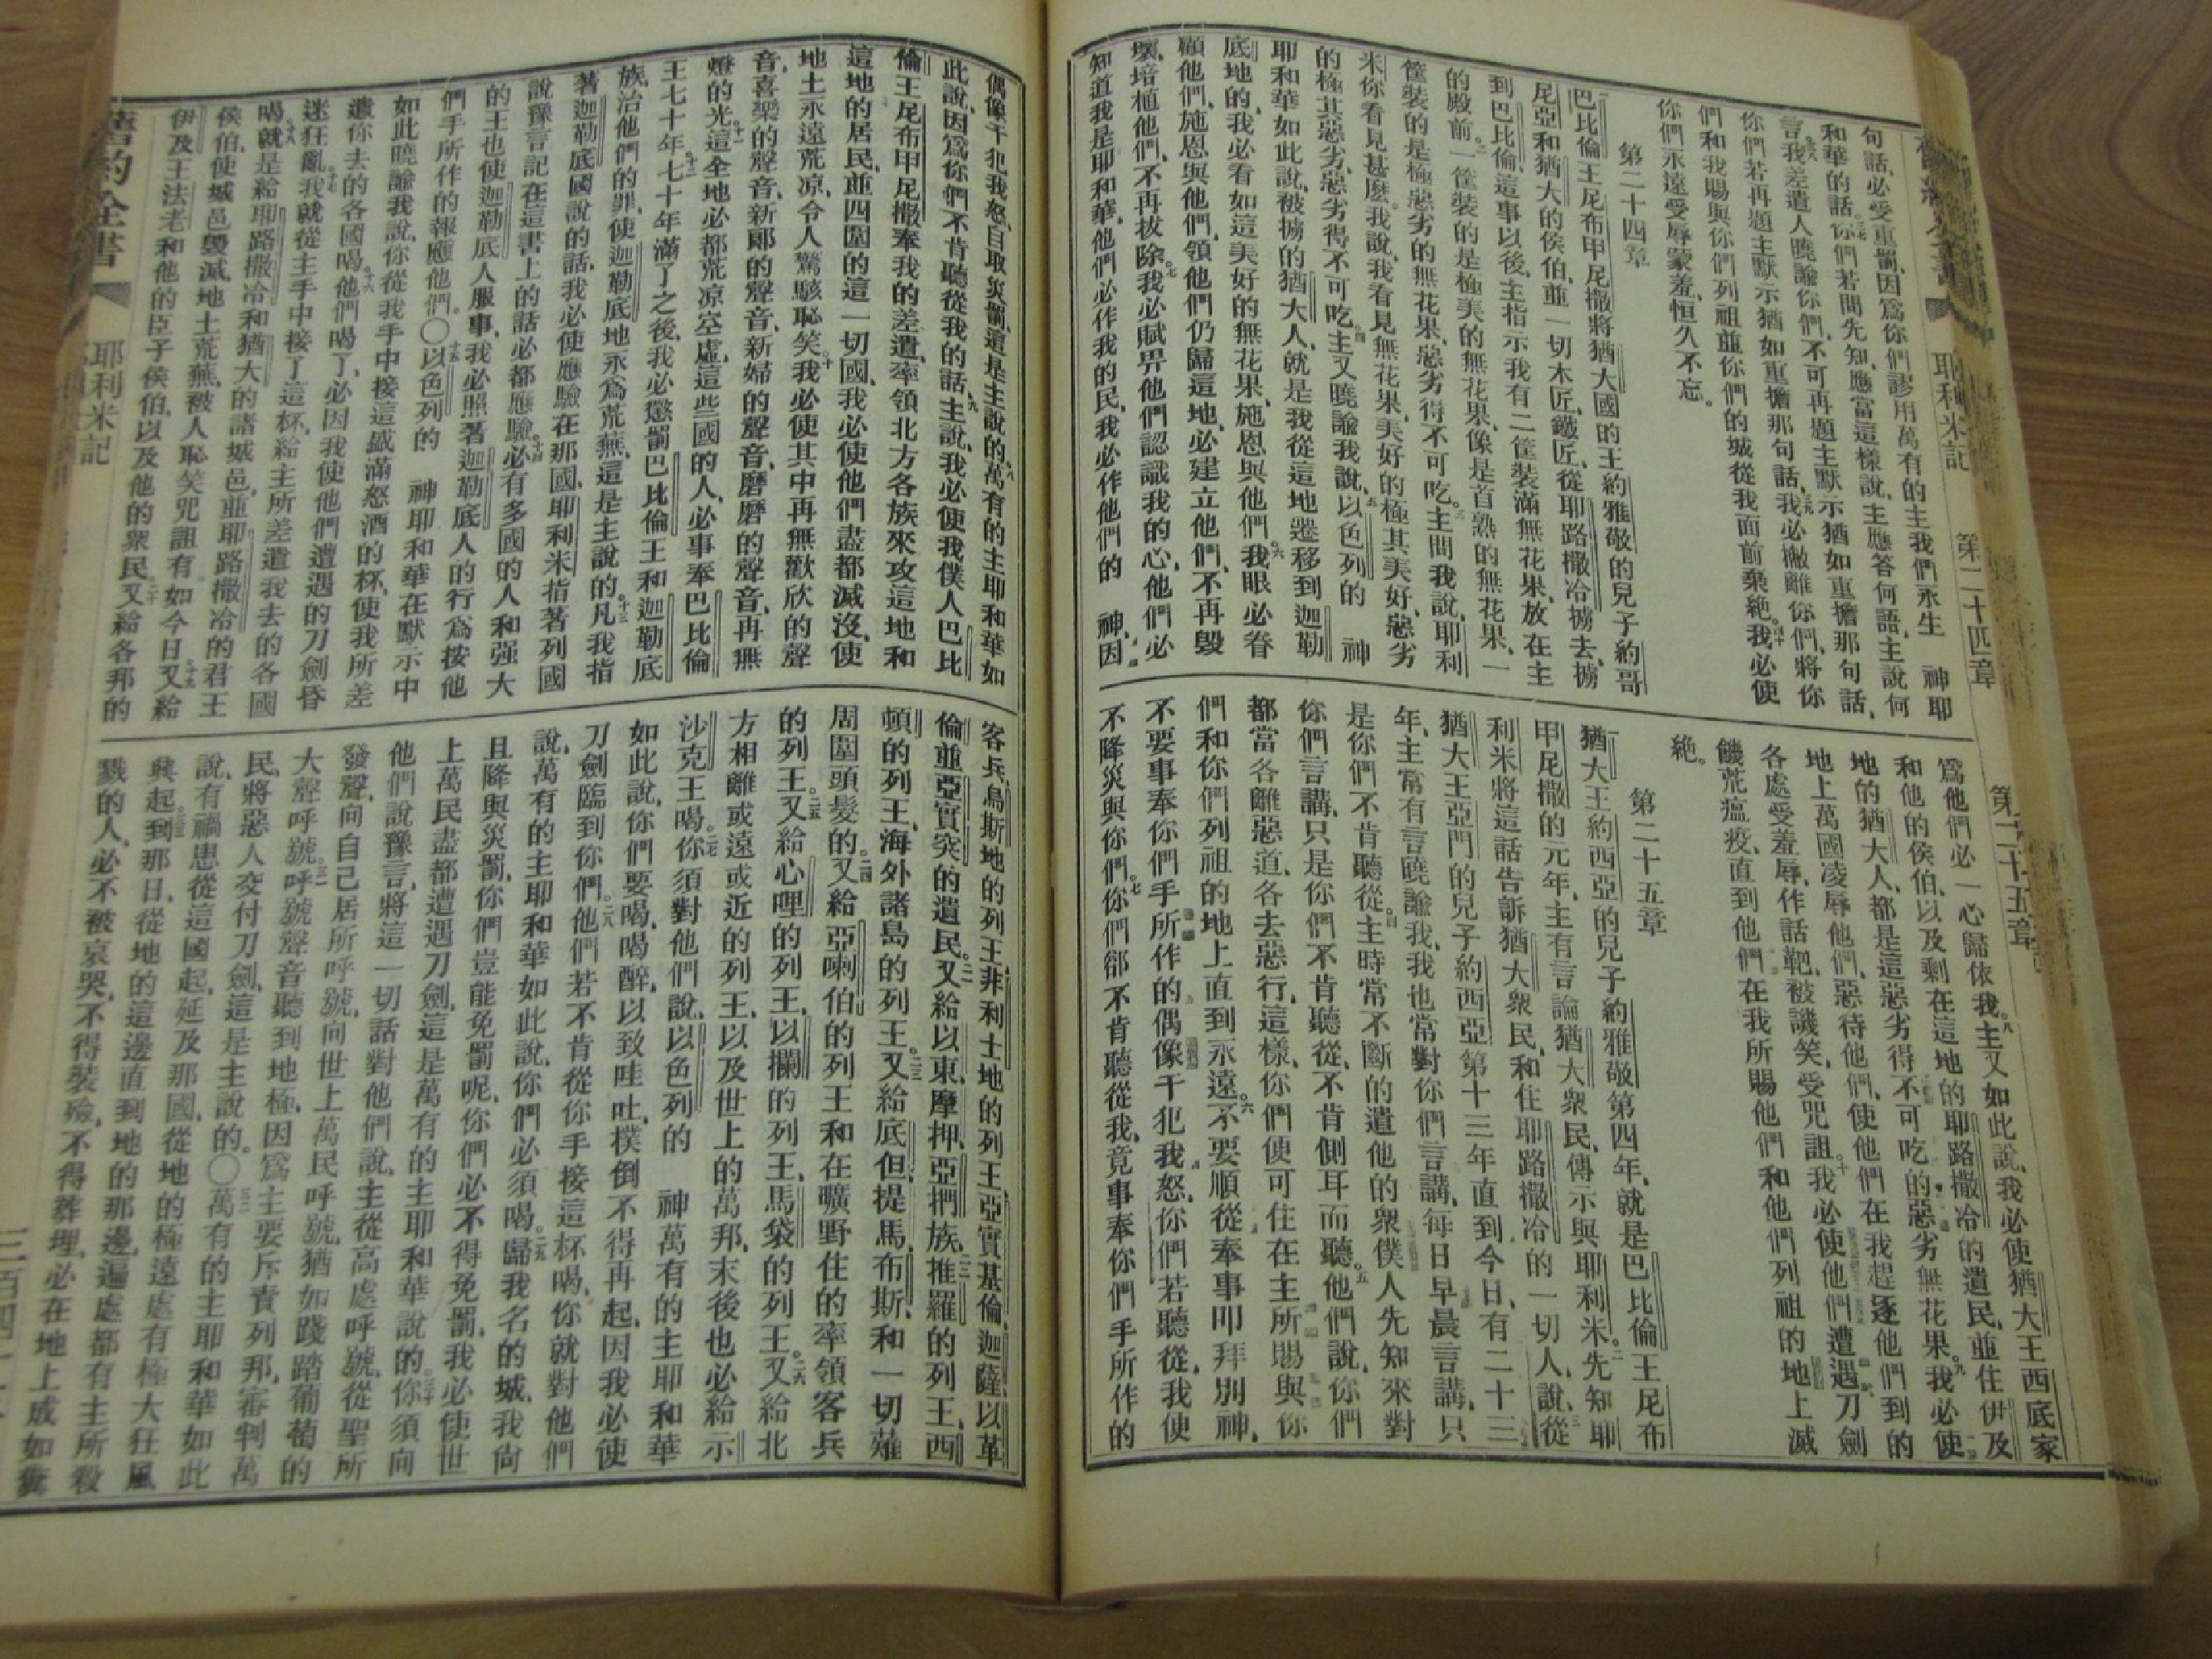 耶利米記
第二十四章
第二十五章
句話、必受重罰、因爲你們謬用萬有的主我們永生　神耶
和華的話。你們若問先知、應當這樣說、主應答何語、主說何
言。我差遣人曉諭你們、不可再題主默示猶如重擔那句話、
你們若再題主默示猶如重擔那句話、我必撇離你們、將你
們和我賜與你們列祖並你們的城從我面前棄絕。我必使
你們永遠受辱蒙羞、恒久不忘。
第二十四章
巴比倫王尼布甲尼撒將猶大國的王約雅敬的兒子約哥
尼亞和猶大的侯伯、並一切木匠、鐵匠、從耶路撒冷擄去、擄
到巴比倫、這事以後、主指示我有二筐裝滿無花果、放在主
的殿前。一筐裝的是極美的無花果、像是首熟的無花果、一
筐裝的是極惡劣的無花果、惡劣得不可吃。主問我說、耶利
米你看見甚麽。我說、我看見無花果、美好的極其美好、惡劣
的極其惡劣、惡劣得不可吃。主又曉諭我說、以色列的　神
耶和華如此說、被擄的猶大人、就是我從這地遷移到迦勒
底地的、我必看如這美好的無花果、施恩與他們。我眼必眷
顧他們、施恩與他們、領他們仍歸這地、必建立他們、不再毀
壞、培植他們、不再拔除。我必賦畀他們認識我的心、他們必
知道我是耶和華、他們必作我的民、我必作他們的　神、因
爲他們必一心歸依我。主又如此說、我必使猶大王西底家
和他的侯伯、以及剩在這地的耶路撒冷的遺民、並住伊及
地的猶大人、都是這惡劣得不可吃的惡劣無花果。我必使
地上萬國凌辱他們、惡待他們、使他們在我趕逐他們到的
各處受羞辱、作話靶、被譏笑、受咒詛。我必使他們遭遇刀劍
饑荒瘟疫、直到他們在我所賜他們和他們列祖的地上滅
絕。
第二十五章
猶大王約西亞的兒子約雅敬第四年、就是巴比倫王尼布
甲尼撒的元年、主有言論猶大衆民、傳示與耶利米。先知耶
利米將這話告訴猶大衆民、和住耶路撒冷的一切人、說、從
猶大王亞門的兒子約西亞第十三年直到今日、有二十三
年、主常有言曉諭我、我也常對你們言講、每日早晨言講、只
是你們不肯聽從。主時常不斷的遣他的衆僕人先知來對
你們言講、只是你們不肯聽從、不肯側耳而聽。他們說、你們
都當各離惡道、各去惡行、這樣、你們便可住在主所賜與你
們和你們列祖的地上直到永遠。不要順從奉事叩拜別神、
不要事奉你們手所作的偶像干犯我怒、你們若聽從、我便
不降災與你們。你們卻不肯聽從我、竟事奉你們手所作的
耶利米記
偶像干犯我怒、自取災禍、這是主說的。萬有的主耶和華如
此說、因爲你們不肯聽從我的話、主說、我必使我僕人巴比
倫王尼布甲尼撒奉我的差遣、率領北方各族來攻這地和
這地的居民、並四圍的這一切國、我必使他們盡都滅沒、使
地土永遠荒凉、令人驚駭恥笑。我必使其中再無歡欣的聲
音、喜樂的聲音、新郞的聲音、新婦的聲音、磨磨的聲音、再無
燈的光。這全地必都荒凉空虛、這些國的人、必事奉巴比倫
王七十年。七十年滿了之後、我必懲罰巴比倫王和迦勒底
族、治他們的罪、使迦勒底地永爲荒蕪、這是主說的。凡我指
著迦勒底國說的話、我必使應驗在那國、耶利米指著列國
說豫言記在這書上的話必都應驗。必有多國的人和强大
的王也使迦勒底人服事、我必照著迦勒底人的行爲按他
們手所作的報應他們。〇以色列的　神耶和華在默示中
如此曉諭我說、你從我手中接這盛滿怒酒的杯、使我所差
遣你去的各國喝。他們喝了、必因我使他們遭遇的刀劍昏
迷狂亂。我就從主手中接了這杯、給主所差遣我去的各國
喝。就是給耶路撒冷和猶大的諸城邑、並耶路撒冷的君王
侯伯、使城邑毀滅、地土荒蕪、被人恥笑咒詛、有如今日。又給
伊及王法老和他的臣子侯伯、以及他的衆民。又給各邦的
客兵、烏斯地的列王、非利士地的列王、亞實基倫、迦薩、以革
倫、並亞實突的遺民。又給以東、摩押、亞捫族。推羅的列王、西
頓的列王、海外諸島的列王。又給底但、提馬、布斯、和一切薙
周圍頭髮的。又給亞喇伯的列王和在曠野住的率領客兵
的列王。又給心哩的列王、以攔的列王、馬代的列王。又給北
方相離或遠或近的列王、以及世上的萬邦、末後也必給示
沙克王喝。你須對他們說、以色列的　神萬有的主耶和華
如此說、你們要喝、喝醉、以致哇吐、撲倒不得再起、因我必使
刀劍臨到你們。他們若不肯從你手接這杯喝、你就對他們
說、萬有的主耶和華如此說、你們必須喝。歸我名的城、我尙
且降與災罰、你們豈能免罰呢、你們必不得免罰、我必使世
上萬民盡都遭遇刀劍、這是萬有的主耶和華說的。你須向
他們說豫言、將這一切話對他們說、主從高處呼號、從聖所
發聲、向自己居所呼號、向世上萬民呼號、猶如踐踏葡萄的
大聲呼號。呼號聲音聽到地極、因爲主要斥責列邦、審判萬
民、將惡人交付刀劍、這是主說的。〇萬有的主耶和華如此
說、有禍患從這國起、延及那國、從地的極遠處有極大狂風
興起。到那日、從地的這邊直到地的那邊、遍處都有主所殺
戮的人、必不被哀哭、不得裝殮、不得葬埋、必在地上成如糞